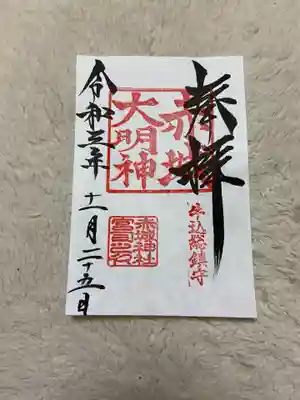 奉拝
牛込総鎮守
赤城
大明神
赤城神社
宮司之印
令和三年 十一月 二十五日